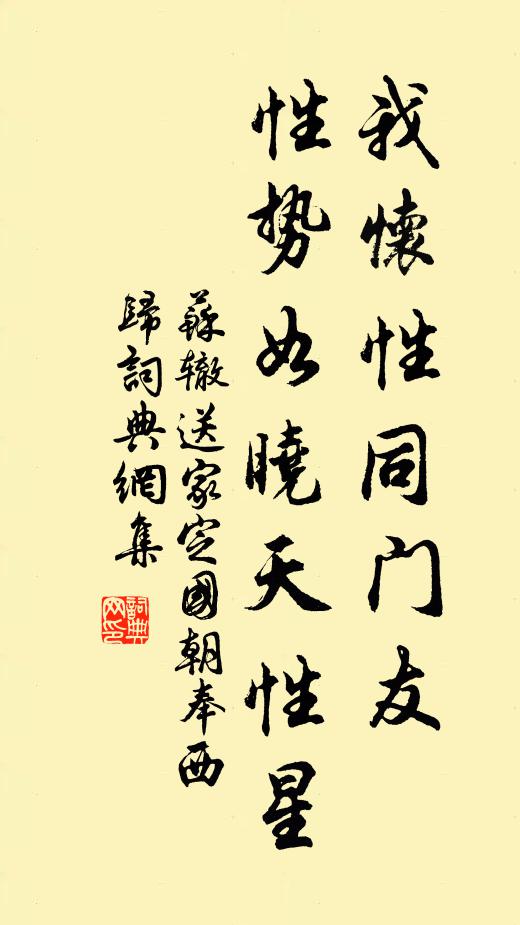 我懷性同门友
性势如曉天性星
蘇辙送家定國朝奉西
歸詞典網集
詞典
网印